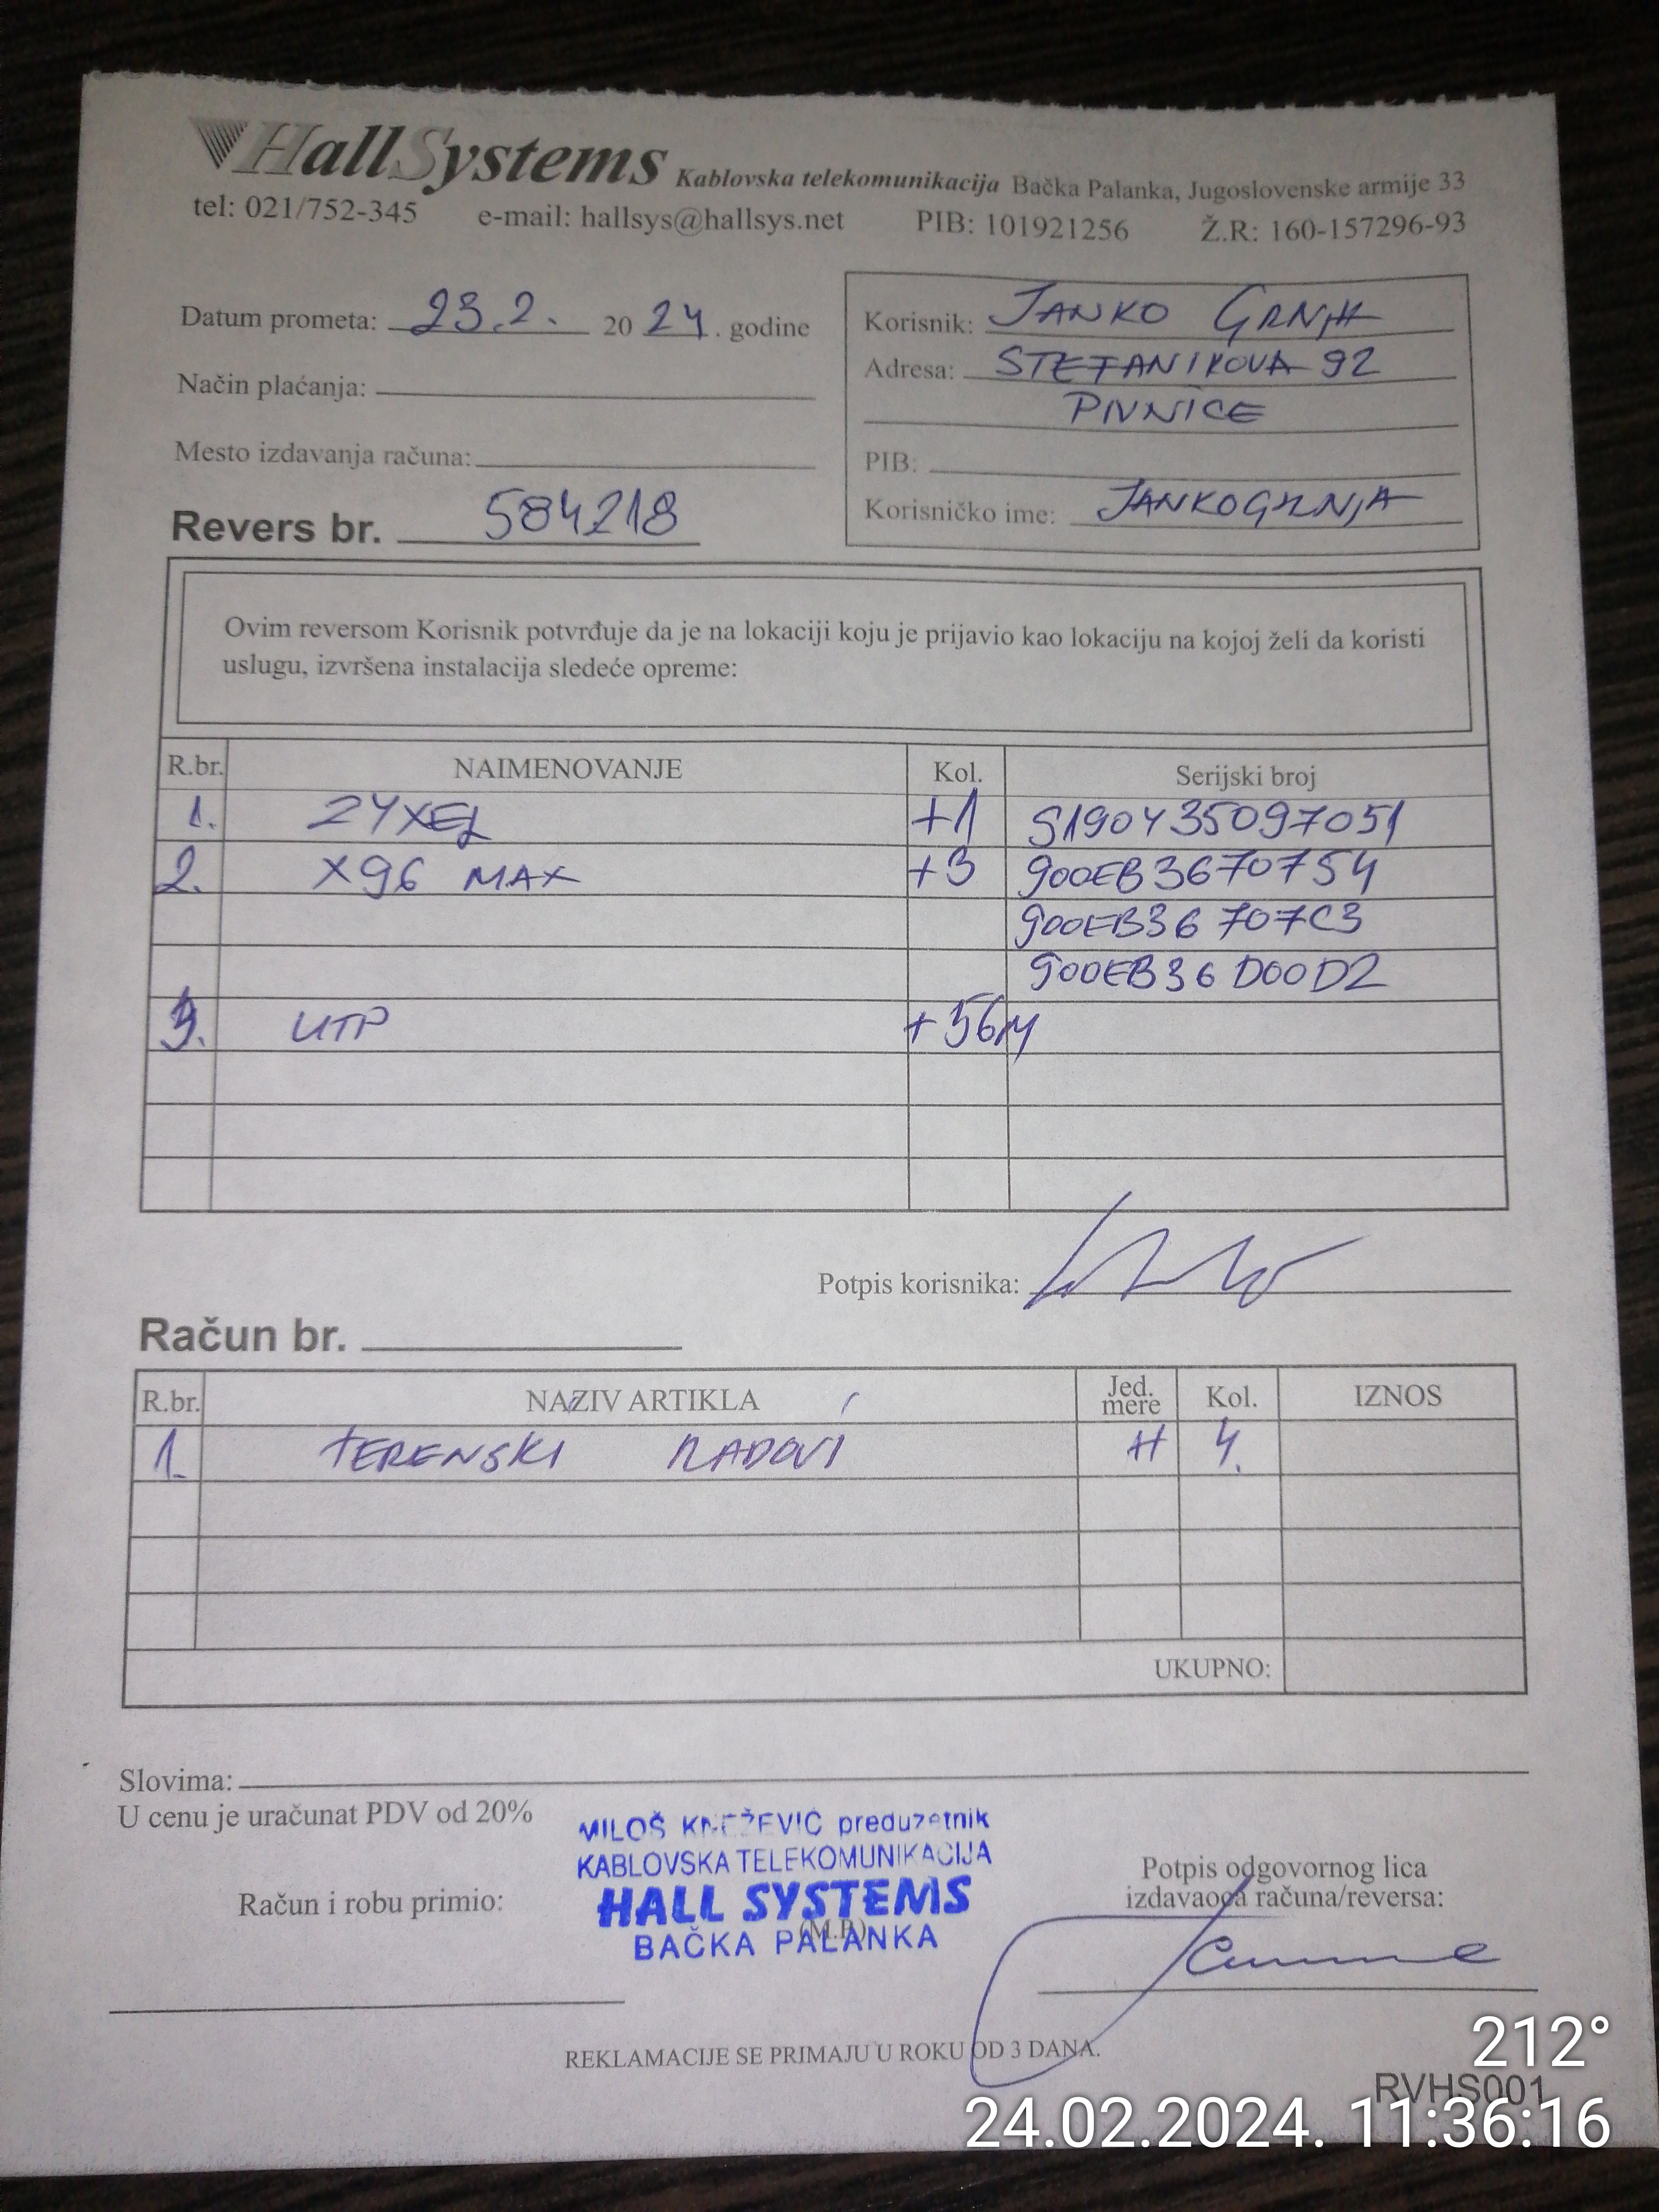 HallSystems Kablovska telekomunikacija Bačka Palanka, Jugoslovenske armije 33
tel: 021/752-345 e-mail: hallsys@hallsys.net PIB: 101921256 Ž.R: 160-157296-93
Datum prometa: 23.2. 2024. godine
Način plaćanja:
Mesto izdavanja računa:
Revers br. 584218
Korisnik: JANKO GRNJA
Adresa: STEFANIKOVA 92
PIVNICE
PIB:
Korisničko ime: JANKOGRNJA
Ovim reversom Korisnik potvrđuje da je na lokaciji koju je prijavio kao lokaciju na kojoj želi da koristi
uslugu, izvršena instalacija sledeće opreme:
R.br. NAIMENOVANJE Kol. Serijski broj
1. ZYXEL +1 S190Y35097051
2. X96 MAX +3 900EB3670754
900EB36707C3
900EB36D00D2
3. UTP +56M
Potpis korisnika:
Račun br.
R.br. NAZIV ARTIKLA Jed. mere Kol. IZNOS
1. TERENSKI RADOVI H 4.
UKUPNO:
Slovima:
U cenu je uračunat PDV od 20%
MILOŠ KNEŽEVIĆ preduzetnik
KABLOVSKA TELEKOMUNIKACIJA
HALL SYSTEMS
(M.P.)
BAČKA PALANKA
Račun i robu primio:
Potpis odgovornog lica
izdavaoca računa/reversa:
REKLAMACIJE SE PRIMAJU U ROKU OD 3 DANA.
212°
RVHS001
24.02.2024. 11:36:16